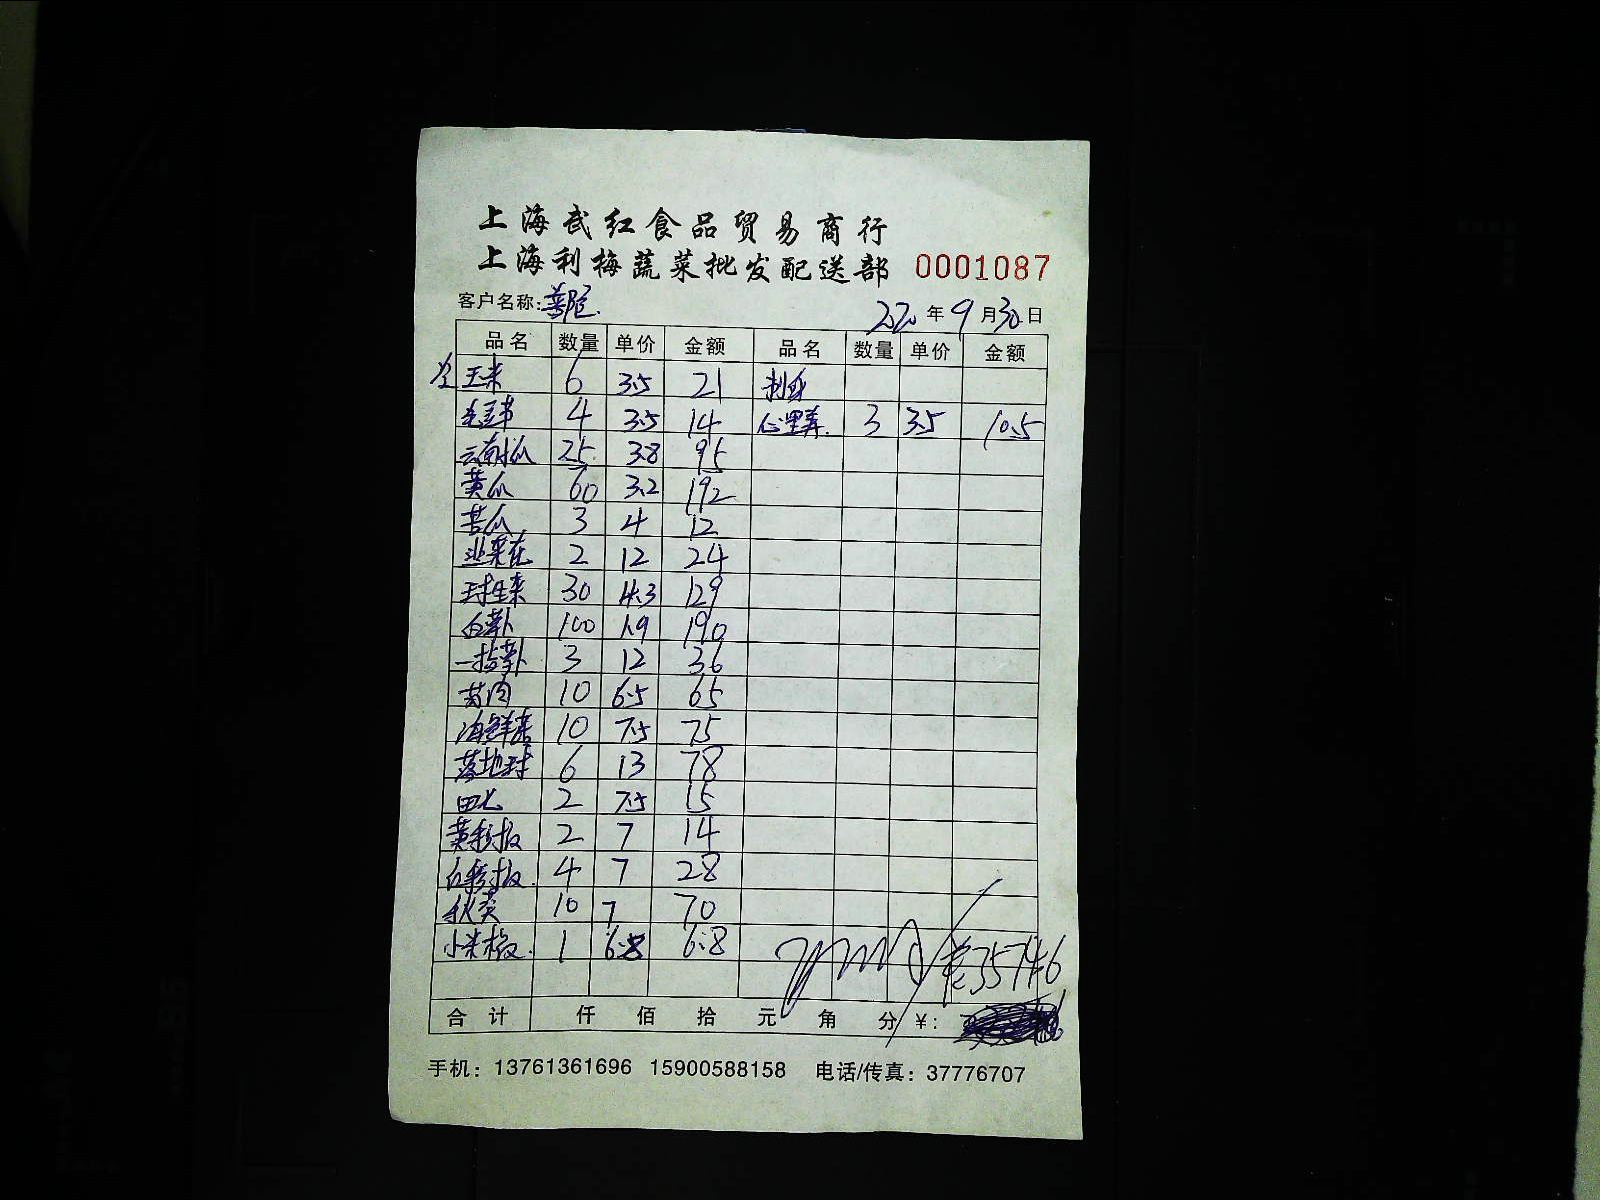 上海武红食品贸易商行
上海利梅蔬菜批发配送部 0001087
客户名称: 普陀. 2020年9月30日
品名 数量 单价 金额 品名 数量 单价 金额
玉米 6 3.5 21 刺身
毛豆节 4 3.5 14 心里美. 3 3.5 10.5
云南小瓜 25. 3.8 95
黄瓜 60 3.2 192
苦瓜 3 4 12
韭菜花 2 12 24
球生菜 30 4.3 129
白萝卜 100 1.9 190
一指萝卜 3 12 36
茄肉 10 6.5 65
海鲜菇 10 7.5 75
落地球 6 13 78
2 7.5 15
黄彩椒 2 7 14
红彩椒. 4 7 28
秋葵 10 7 70
小米椒. 1 6.8 6.8
合计 仟 佰 拾 元 角 分 ¥:
手机: 13761361696 15900588158 电话/传真: 37776707